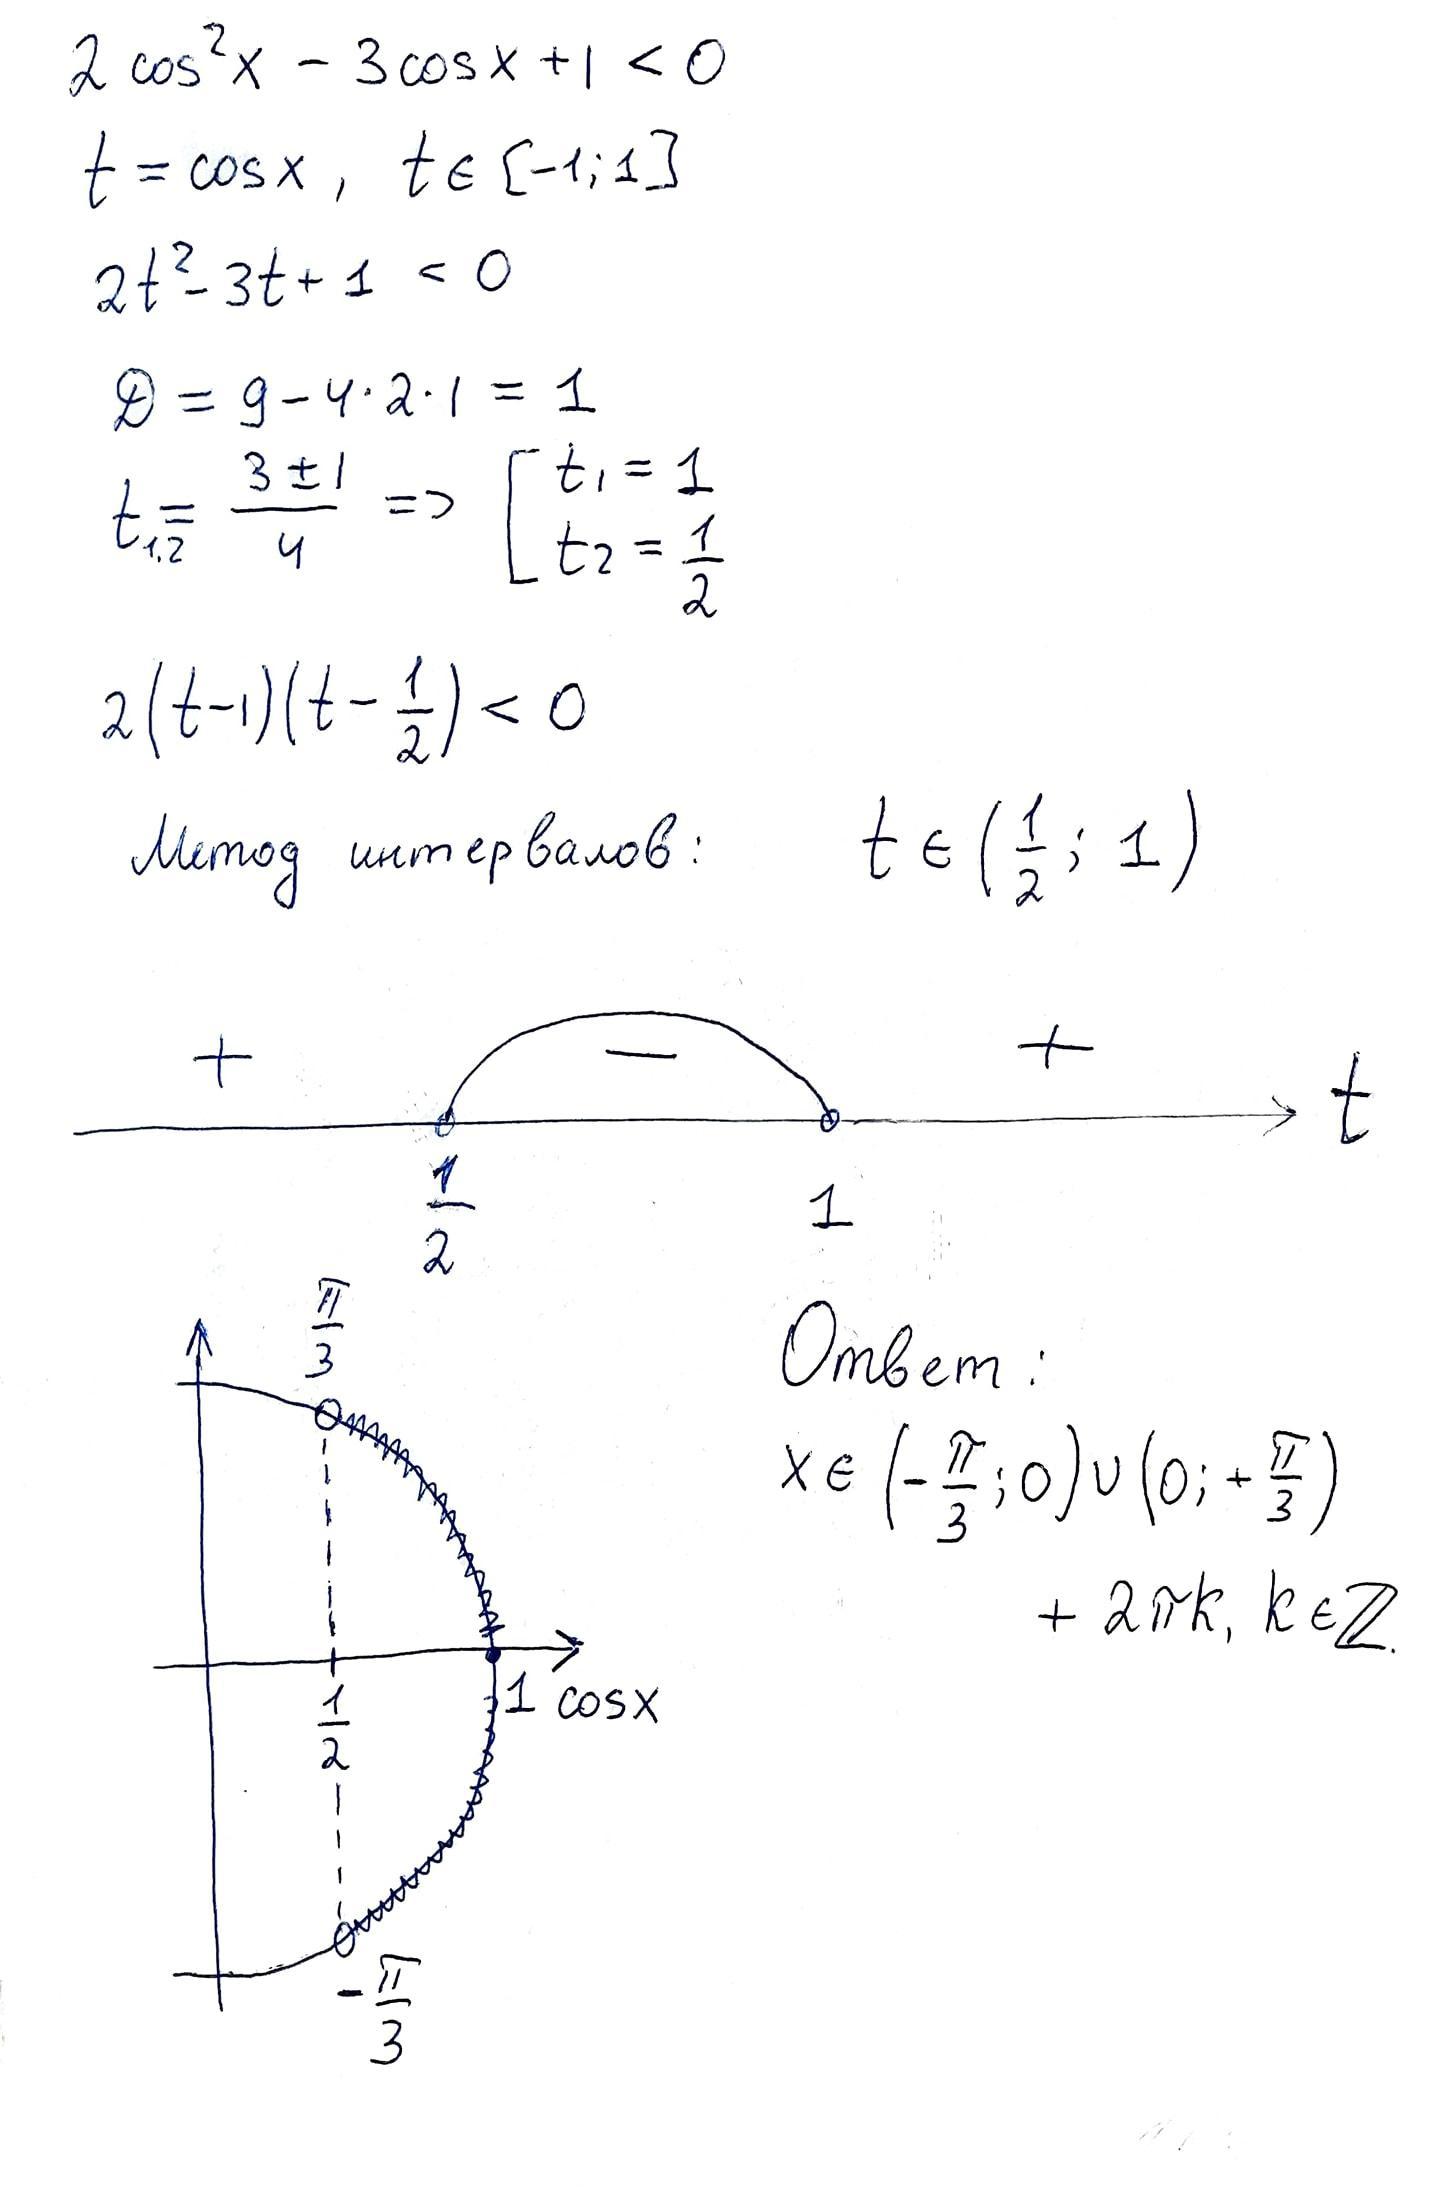 2 cos²x - 3cosx + 1 < 0
t = cosx, t ∈ [-1; 1]
2t² - 3t + 1 < 0
D = 9 - 4·2·1 = 1
t₁,₂ = (3 ± 1)/4 => [ t₁ = 1
t₂ = 1/2
2(t-1)(t - 1/2) < 0
Метод интервалов: t ∈ (1/2; 1)
+ − + t
1/2 1
π/3
1/2 1 cosx
-π/3
Ответ:
x ∈ (-π/3; 0) ∪ (0; +π/3)
+ 2πk, k ∈ ℤ.